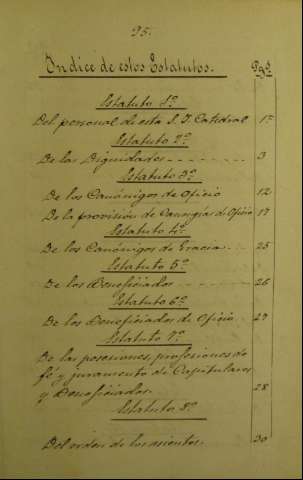 95.
Indice de estos Estatutos. Pgs
Estatuto 1º
Del personal de esta S. I. Catedral 1º
Estatuto 2º
De las Dignidades 3
Estatuto 3º
De los Canónigos de Oficio 12
De la provisión de Canongias de Oficio 17
Estatuto 4º
De los Canónigos de Gracia 25
Estatuto 5º
De los Beneficiados 26
Estatuto 6º
De los Beneficiados de Oficio 27
Estatuto 7º
De las posesiones, profesiones de
fé y juramento de Capitulares
y Beneficiados. 28
Estatuto 8º
Del orden de los asientos. 30